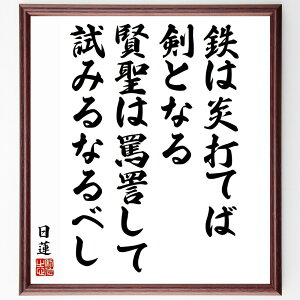 鉄は炎打てば
剣となる
賢聖は罵詈して
試みるなるべし
日蓮